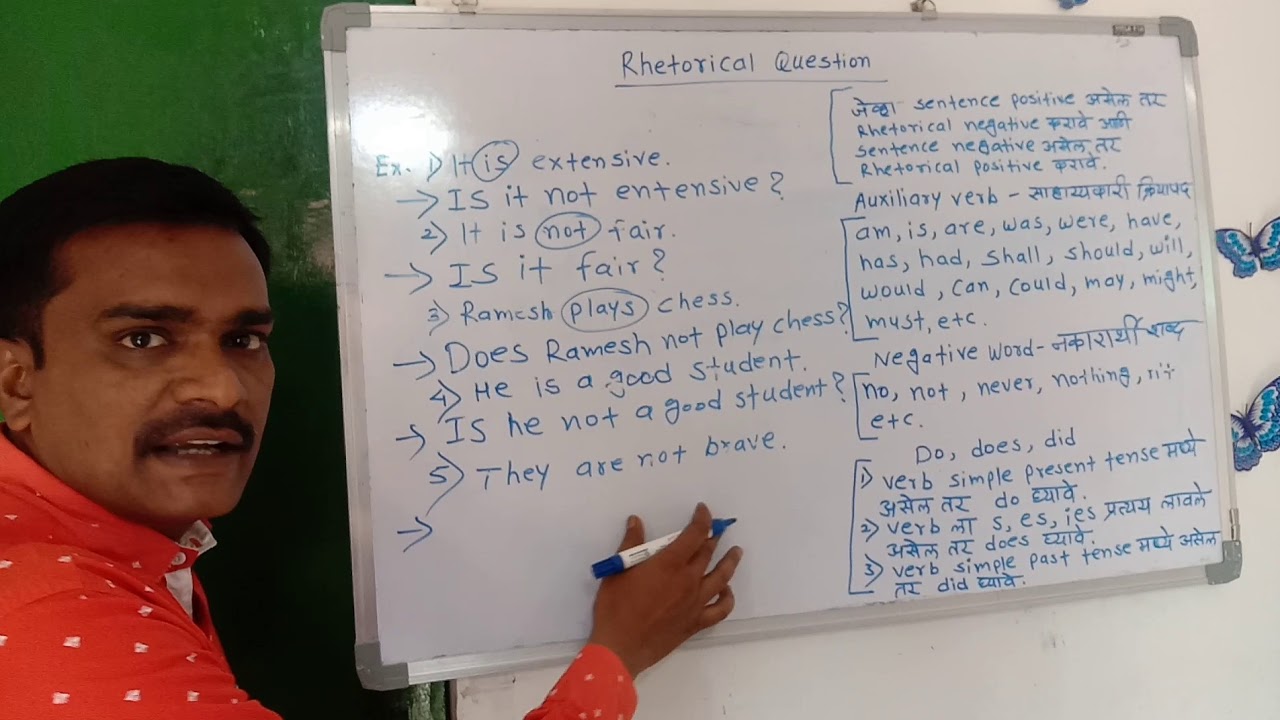 Rhetorical Question
Ex. 1) It is extensive.
→ Is it not entensive?
2) It is not fair.
→ Is it fair?
3) Ramesh plays chess.
→ Does Ramesh not play chess?
4) He is a good student.
→ Is he not a good student?
5) They are not brave.
→
जेव्हा sentence positive असेल तर
Rhetorical negative करावे आणि
sentence negative असेल तर
Rhetorical positive करावे.
Auxiliary verb - साहाय्यकारी क्रियापद
am, is, are, was, were, have,
has, had, shall, should, will,
would, can, could, may, might,
must, etc.
Negative word - नकारार्थी शब्द
no, not, never, nothing,
etc.
Do, does, did
1) verb simple present tense मध्ये
असेल तर do घ्यावे.
2) verb ला s, es, ies प्रत्यय लावले
असेल तर does घ्यावे.
3) verb simple past tense मध्ये असेल
तर did घ्यावे.